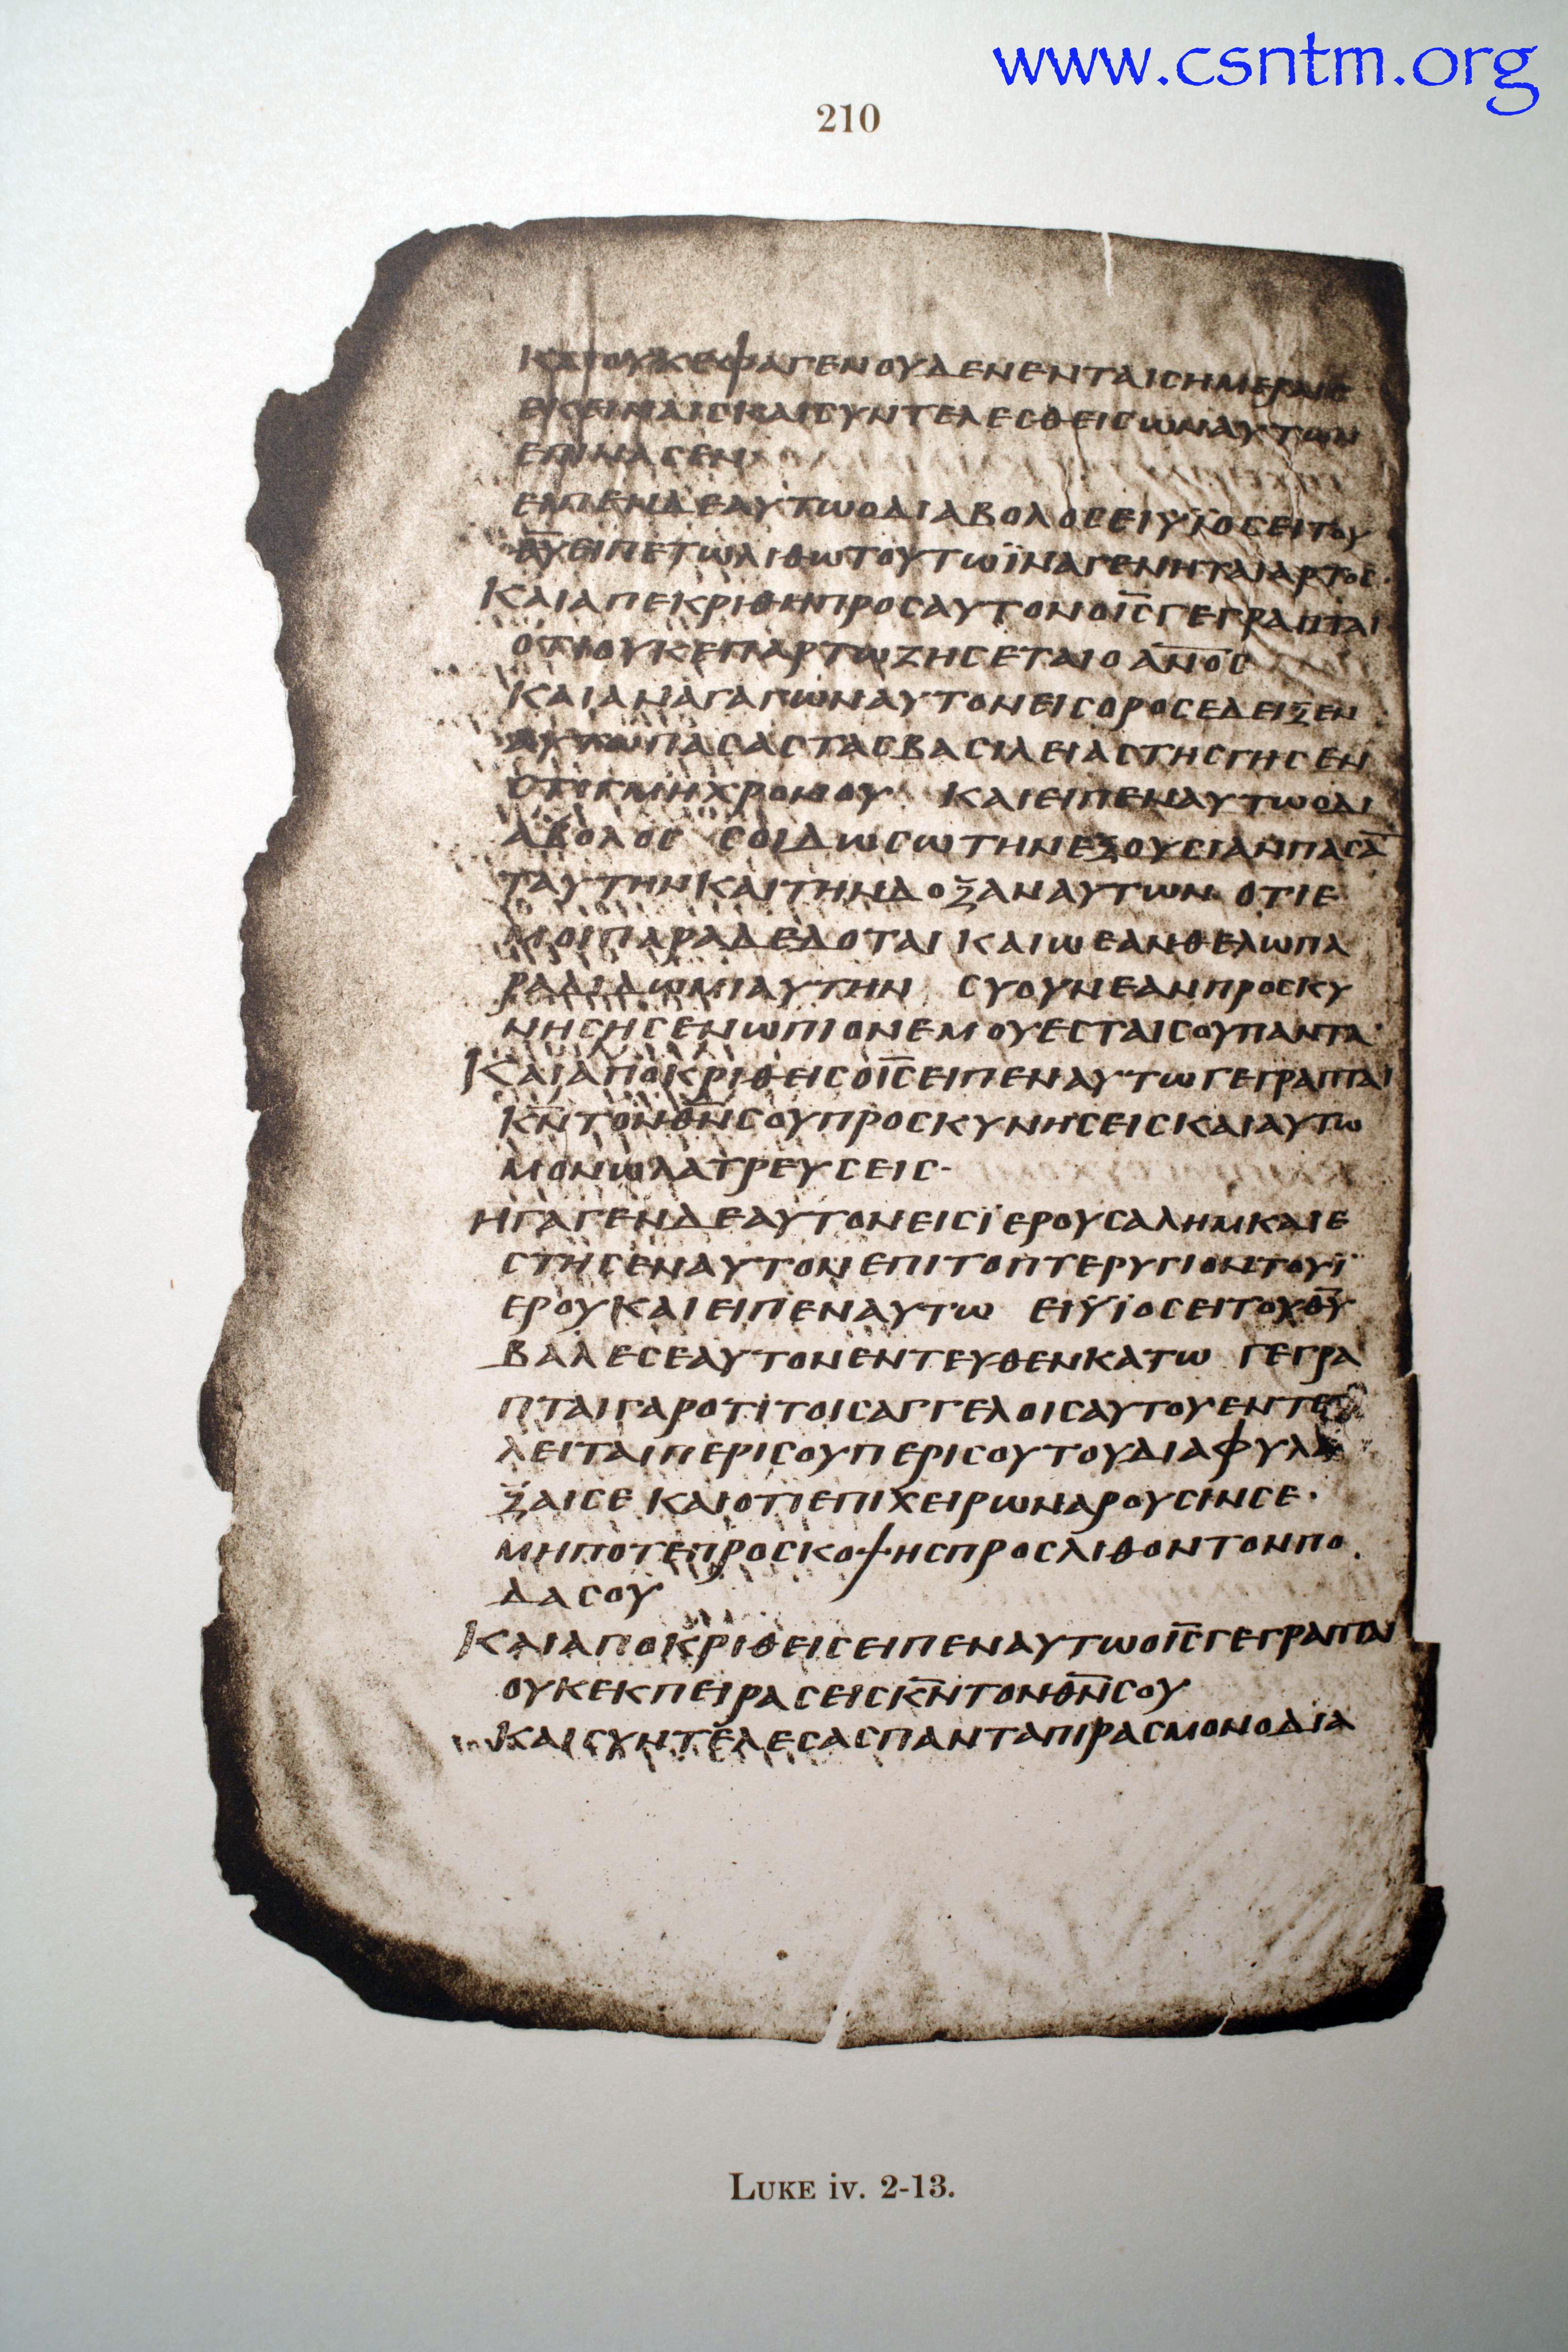 www.csntm.org
210
ΚΑΙΟΥΚΕΦΑΓΕΝΟΥΔΕΝΕΝΤΑΙCΗΜΕΡΑΙC
ΕΚΕΙΝΑΙCΚΑΙCΥΝΤΕΛΕCΘΕΙCΩΝΑΥΤΩΝ
ΕΠΙΝΑCΕΝ
ΕΙΠΕΝΔΕΑΥΤΩΟΔΙΑΒΟΛΟCΕΙΫΪΟCΕΙΤΟΥ
Θ̅Υ̅ΕΙΠΕΤΩΛΙΘΩΤΟΥΤΩΪΝΑΓΕΝΗΤΑΙΑΡΤΟC·
ΚΑΙΑΠΕΚΡΙΘΗΠΡΟCΑΥΤΟΝΟΙ̅C̅ΓΕΓΡΑΠΤΑΙ
ΟΤΙΟΥΚΕΠΑΡΤΩΖΗCΕΤΑΙΟΑ̅Ν̅Ο̅C̅
ΚΑΙΑΝΑΓΑΓΩΝΑΥΤΟΝΕΙCΟΡΟCΕΔΕΙΞΕΝ
ΑΥΤΩΠΑCΑCΤΑCΒΑCΙΛΕΙΑCΤΗCΓΗCΕΝ
CΤΙΓΜΗΧΡΟΝΟΥ ΚΑΙΕΙΠΕΝΑΥΤΩΟΔΙ
ΑΒΟΛΟC CΟΙΔΩCΩΤΗΝΕΞΟΥCΙΑΝΠΑCΑ̅
ΤΑΥΤΗΝΚΑΙΤΗΝΔΟΞΑΝΑΥΤΩΝ· ΟΤΙΕ
ΜΟΙΠΑΡΑΔΕΔΟΤΑΙ ΚΑΙΩΕΑΝΘΕΛΩΠΑ
ΡΑΔΙΔΩΜΙΑΥΤΗΝ CΥΟΥΝΕΑΝΠΡΟCΚΥ
ΝΗCΗCΕΝΩΠΙΟΝΕΜΟΥΕCΤΑΙCΟΥΠΑΝΤΑ·
ΚΑΙΑΠΟΚΡΙΘΕΙCΟΙ̅C̅ΕΙΠΕΝΑΥΤΩΓΕΓΡΑΠΤΑΙ
Κ̅Ν̅ΤΟΝΘ̅Ν̅CΟΥΠΡΟCΚΥΝΗCΕΙCΚΑΙΑΥΤΩ
ΜΟΝΩΛΑΤΡΕΥCΕΙC·
ΗΓΑΓΕΝΔΕΑΥΤΟΝΕΙCΪΕΡΟΥCΑΛΗΜΚΑΙΕ
CΤΗCΕΝΑΥΤΟΝΕΠΙΤΟΠΤΕΡΥΓΙΟΝΤΟΥΪ
ΕΡΟΥΚΑΙΕΙΠΕΝΑΥΤΩ ΕΙΫΪΟCΕΙΤΟΥΘ̅Υ̅
ΒΑΛΕCΕΑΥΤΟΝΕΝΤΕΥΘΕΝΚΑΤΩ ΓΕΓΡΑ
ΠΤΑΙΓΑΡΟΤΙΤΟΙCΑΓΓΕΛΟΙCΑΥΤΟΥΕΝΤΕ
ΛΕΙΤΑΙΠΕΡΙCΟΥΠΕΡΙCΟΥΤΟΥΔΙΑΦΥΛΑ
ΞΑΙCΕ ΚΑΙΟΤΙΕΠΙΧΕΙΡΩΝΑΡΟΥCΙΝCΕ·
ΜΗΠΟΤΕΠΡΟCΚΟΨΗCΠΡΟCΛΙΘΟΝΤΟΝΠΟ
ΔΑCΟΥ
ΚΑΙΑΠΟΚΡΙΘΕΙCΕΙΠΕΝΑΥΤΩΟΙ̅C̅ΓΕΓΡΑΠΤΑΙ
ΟΥΚΕΚΠΕΙΡΑCΕΙCΚ̅Ν̅ΤΟΝΘ̅Ν̅CΟΥ
ΚΑΙCΥΝΤΕΛΕCΑCΠΑΝΤΑΠΙΡΑCΜΟΝΟΔΙΑ
LUKE iv. 2-13.